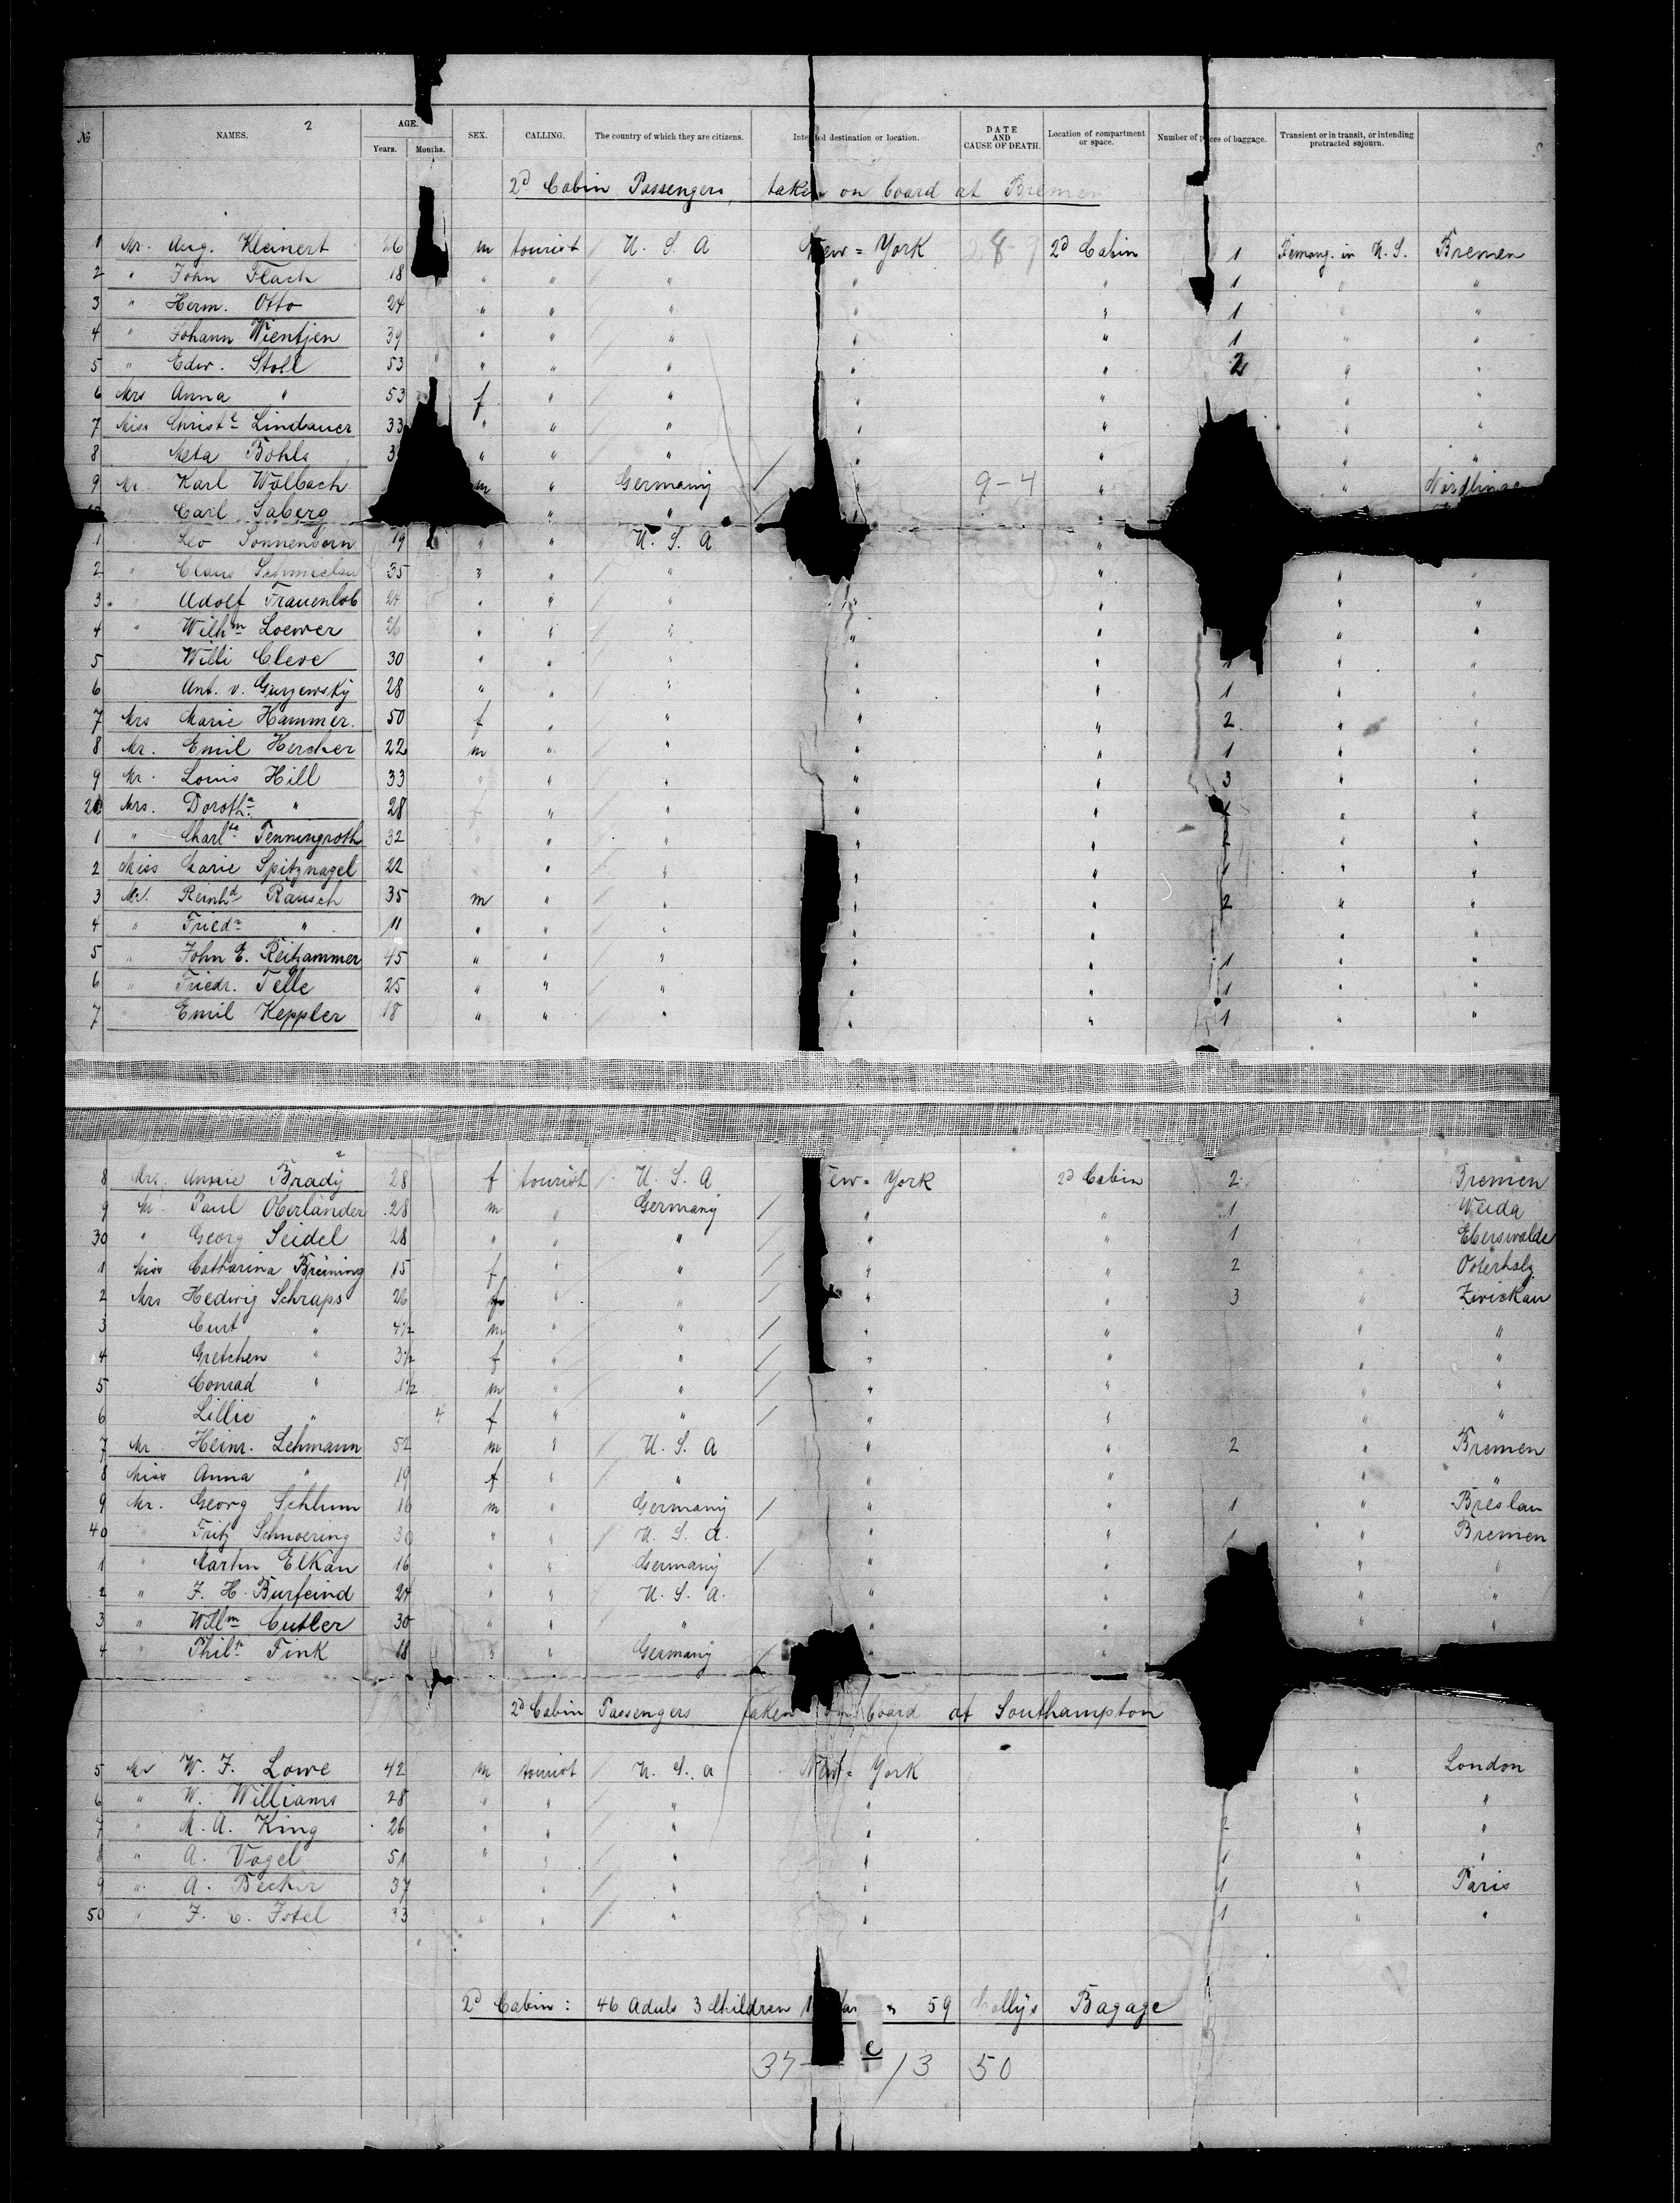 2
№ NAMES. AGE. Years. Months. SEX. CALLING. The country of which they are citizens. Intended destination or location. DATE AND CAUSE OF DEATH. Location of compartment or space. Number of pieces of baggage. Transient or in transit, or intending protracted sojourn.
2d Cabin Passengers, taken on board at Bremen
1 Mr. Aug. Kleinert 26 m tourist U. S. A New = York 2d Cabin 1 in U. S. Bremen
2 " John Flach 18 " " " " " 1 " "
3 " Herm. Otto 24 " " " " " 1 " "
4 " Johann Wientjen 39 " " " " " 1 " "
5 " Edw. Stoll 53 " " " " " 2 " "
6 Mrs Anna " 53 f " " " " " "
7 Miss Christ Lindauer 33 " " " " " " "
8 Meta Bohls " " " " " " "
9 Mr. Karl Wölbach m " Germany " 9-4 " "
Carl Saberg " " " "
1 Leo Sonnenborn 19 " " U. S. A "
2 " Claus 35 " " " " " "
3 " Adolf Frauenlob 24 " " " " " " "
4 " Wilhm Loewer 26 " " " " " " "
5 Willi Cleve 30 " " " " " 1 " "
6 Ant. v. 28 " " " " " 1 " "
7 Mrs Marie Hammer. 50 f " " " " 2 " "
8 Mr. Emil Hercher 22 m " " " " 1 " "
9 Mr. Louis Hill 33 " " " " " 3 " "
20 Mrs. Doroth. " 28 " " " " " " "
1 " Charlte Penningroth 32 " " " " " 2 " "
2 Miss Marie Spitznagel 22 " " " " 1 " "
3 Mr. Reinhd Rausch 35 m " " " " 2 " "
4 " Friedr " 11 " " " " " " "
5 " John E. Reitzammer 45 " " " " " 1 " "
6 " Friedr. Telle 25 " " " " " 1 " "
7 Emil Keppler 18 " " " " " 1 " "
8 Mrs. Annie Brady 28 f tourist U. S. A New = York 2d Cabin 2 Bremen
9 Mr. Paul Oberländer 28 m " Germany " " 1 Weida
30 " Georg Seidel 28 " " " " " 1 Eberswalde
1 Miss Catharina Breining 15 f " " " " 2 " Osterholz
2 Mrs Hedwig Schraps 26 f " " " " 3 " Zwickau
3 Curt " 4½ m " " " " " "
4 Gretchen " 3½ f " " " " " "
5 Conrad " 1½ m " " " " " "
6 Lillie " 4 f " " " " " "
7 Mr. Heinr. Lehmann 52 m " U. S. A " " 2 " Bremen
8 Miss Anna " 19 f " " " " " "
9 Mr. Georg Schlum 16 m " Germany " " 1 " Breslau
40 " Fritz Schnoering 30 " " U. S. A. " " 1 " Bremen
1 " Martin Elkan 16 " " Germany " " " "
2 " F. H. Burfeind 24 " " U. S. A. " " " "
3 " Willm Cutler 30 " " " " " " "
4 " Phil. Fink 18 " " Germany " "
2d Cabin Passengers taken on board at Southampton
5 Mr W. F. Lowe 42 m tourist U. S. A New = York " London
6 " W. Williams 28 " " " " " "
7 " M. A. King 26 " " " " 2 " "
8 " A. Vogel 51 " " " " 1 " "
9 " A. Becker 37 " " " 1 " Paris
50 " F. C. Istel 33 " " " " 1 " "
2d Cabin : 46 Aduls 3 Children 1 = 59 Bagage
37 13 50